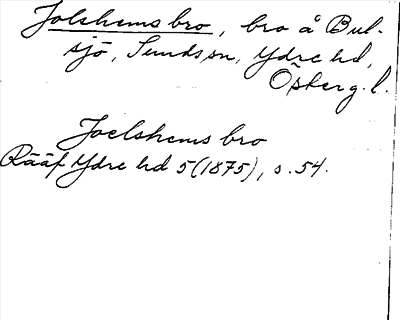 Jolshems bro, bro å Bul-
sjö, Sunds sn, Ydre hd,
Östergl.
Joelshems bro
Rääf Ydre hd 5 (1875), s. 54.